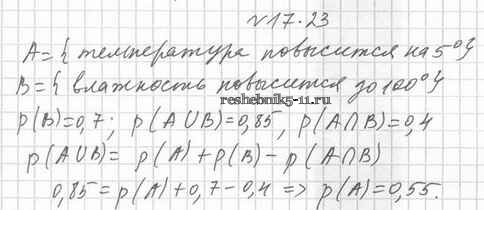 №17.23
A={температура повысится на 5°}
B={влажность повысится до 100°}
reshebnik5-11.ru
p(B)=0,7; p(A∪B)=0,85, p(A∩B)=0,4
p(A∪B)= p(A)+p(B)-p(A∩B)
0,85=p(A)+0,7-0,4 => p(A)=0,55.